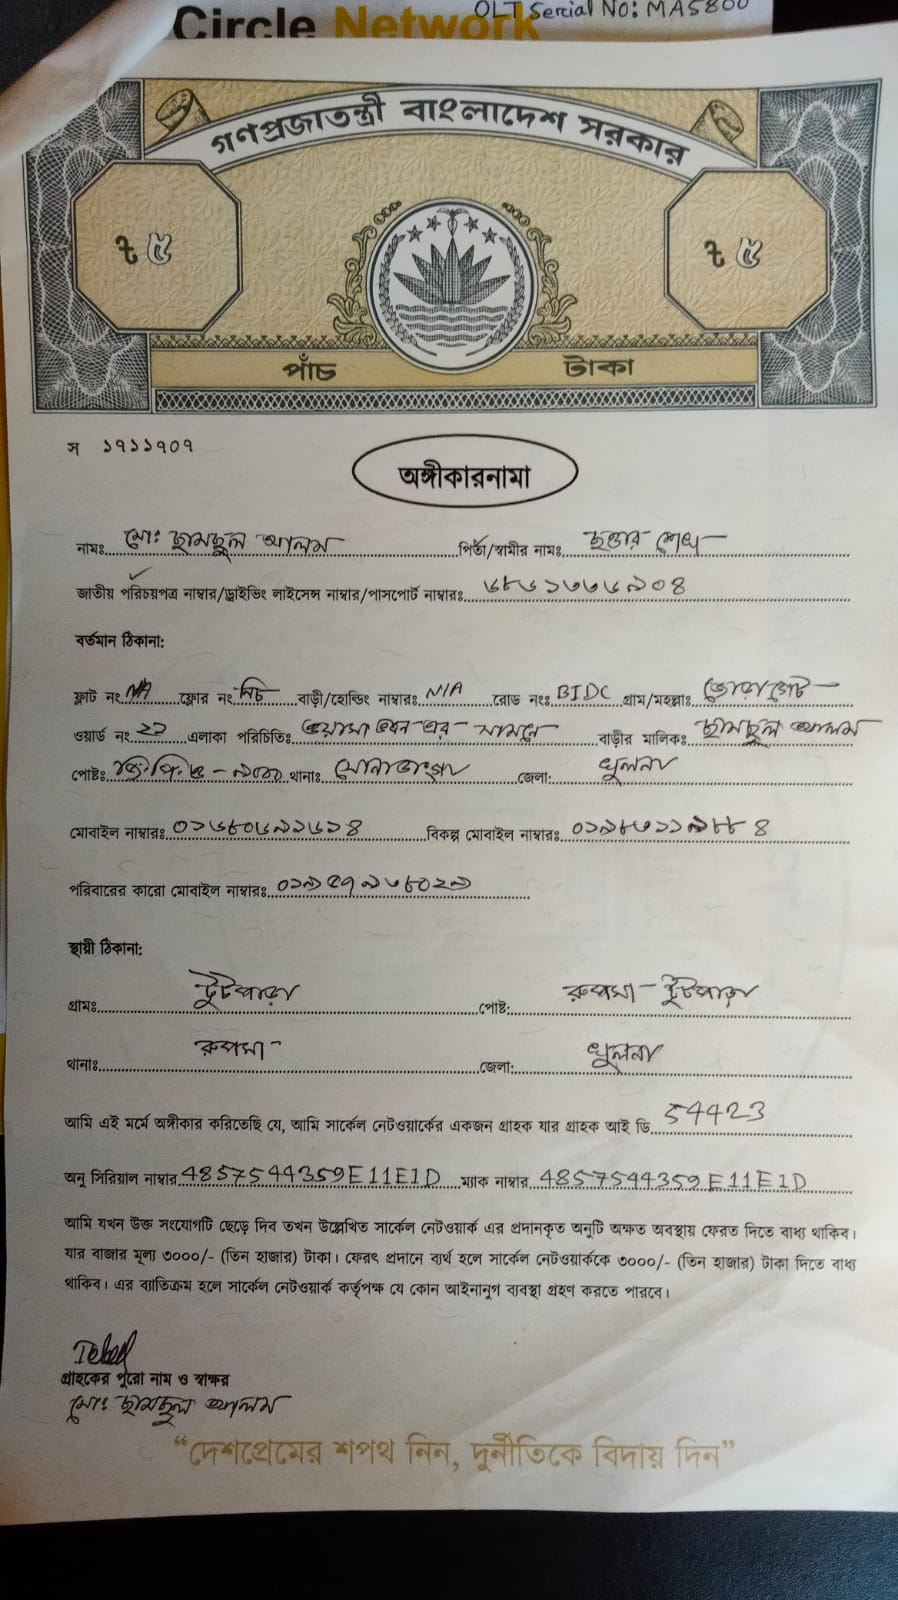 Circle Network
OLT Serial No: MA5800
গণপ্রজাতন্ত্রী বাংলাদেশ সরকার
৳ ৫ ৳ ৫
পাঁচ টাকা
স ১৭১১৭০৭
অঙ্গীকারনামা
নামঃ মোঃ ছামছুল আলম পিতা/স্বামীর নাম: ছত্তার শেখ
জাতীয় পরিচয়পত্র নাম্বার/ড্রাইভিং লাইসেন্স নাম্বার/পাসপোর্ট নাম্বারঃ ৬৮৬১৩৩৬৯০৪
বর্তমান ঠিকানা:
ফ্লাট নং NA ফ্লোর নং নিচ বাড়ী/হোল্ডিং নাম্বারঃ N/A রোড নংঃ BIDC গ্রাম/মহল্লাঃ জোড়াগেট
ওয়ার্ড নং ২১ এলাকা পরিচিতিঃ ওয়াসা ভবন এর সামনে বাড়ীর মালিকঃ ছামছুল আলম
পোষ্টঃ জি.পি.ও - ৯০০০ থানাঃ সোনাডাঙ্গা জেলা: খুলনা
মোবাইল নাম্বারঃ ০১৬৪০৬৯১৬১৪ বিকল্প মোবাইল নাম্বারঃ ০১৯৮৩১১৯৮৮৪
পরিবারের কারো মোবাইল নাম্বারঃ ০১৯৫৭৯৩৮০২৯
স্থায়ী ঠিকানা:
গ্রামঃ টুটপাড়া পোষ্ট: রুপসা - টুটপাড়া
থানাঃ রুপসা জেলা: খুলনা
আমি এই মর্মে অঙ্গীকার করিতেছি যে, আমি সার্কেল নেটওয়ার্কের একজন গ্রাহক যার গ্রাহক আই ডি 54423
অনু সিরিয়াল নাম্বার 4857544359E11E1D ম্যাক নাম্বার 4857544359E11E1D
আমি যখন উক্ত সংযোগটি ছেড়ে দিব তখন উল্লেখিত সার্কেল নেটওয়ার্ক এর প্রদানকৃত অনুটি অক্ষত অবস্থায় ফেরত দিতে বাধ্য থাকিব।
যার বাজার মূল্য ৩০০০/- (তিন হাজার) টাকা। ফেরৎ প্রদানে ব্যর্থ হলে সার্কেল নেটওয়ার্ককে ৩০০০/- (তিন হাজার) টাকা দিতে বাধ্য
থাকিব। এর ব্যাতিক্রম হলে সার্কেল নেটওয়ার্ক কর্তৃপক্ষ যে কোন আইনানুগ ব্যবস্থা গ্রহণ করতে পারবে।
গ্রাহকের পুরো নাম ও স্বাক্ষর
মোঃ ছামছুল আলম
“দেশপ্রেমের শপথ নিন, দুর্নীতিকে বিদায় দিন”